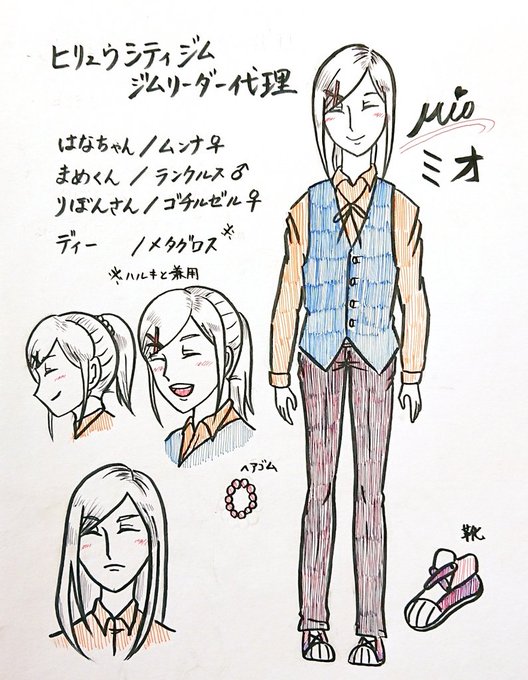 ヒリュウシティジム
ジムリーダー代理
Mio
ミオ
はなちゃん/ムンナ♀
まめくん/ランクルス♂
りぼんさん/ゴチルゼル♀
ディー /メタグロス※
※ハルキと兼用
ヘアゴム
靴